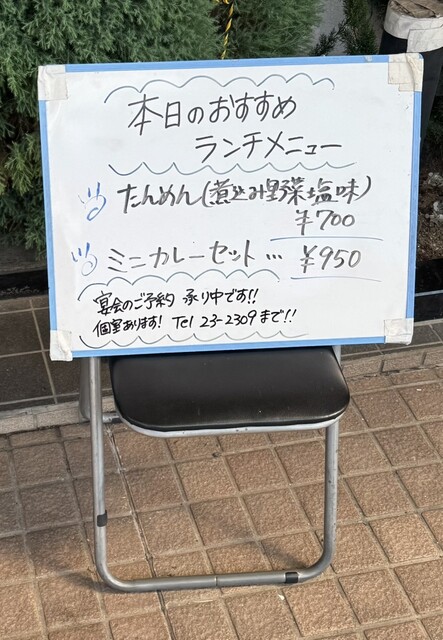 本日のおすすめ
ランチメニュー
たんめん(煮込み野菜塩味)
¥700
ミニカレーセット… ¥950
宴会のご予約 承り中です!!
個室あります! Tel 23-2309まで!!